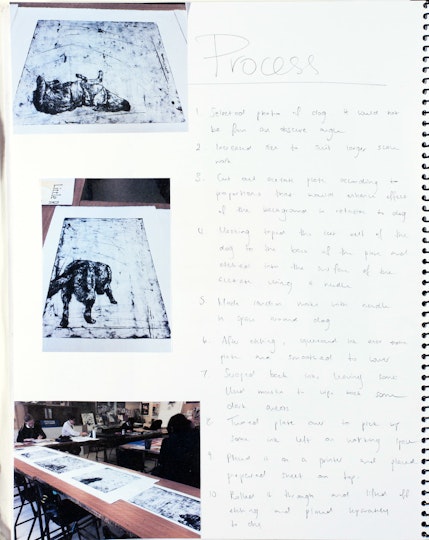 Process
1. Selected photo of dog
be from an obscure angle.
2. Increased size to suit larger scale
work
3. Cut out acetate plate according to
proportions that would enhance effect
of the background in relation to dog
4. Masking taped the cut out of the
dog to the back of the plate and
etched into the surface of the
acetate using a needle
5. Made random marks with needle
in space around dog
6. After etching, squeezed ink over
plate and smoothed to cover
7. Swiped back ink leaving some
Used to wipe back some
dark areas
8. Turned plate over to pick up
some ink left on working space
9. Placed it on a printer and placed
prepared sheet on top
10. Rolled it through and lifted off
etching and placed separately
to dry.